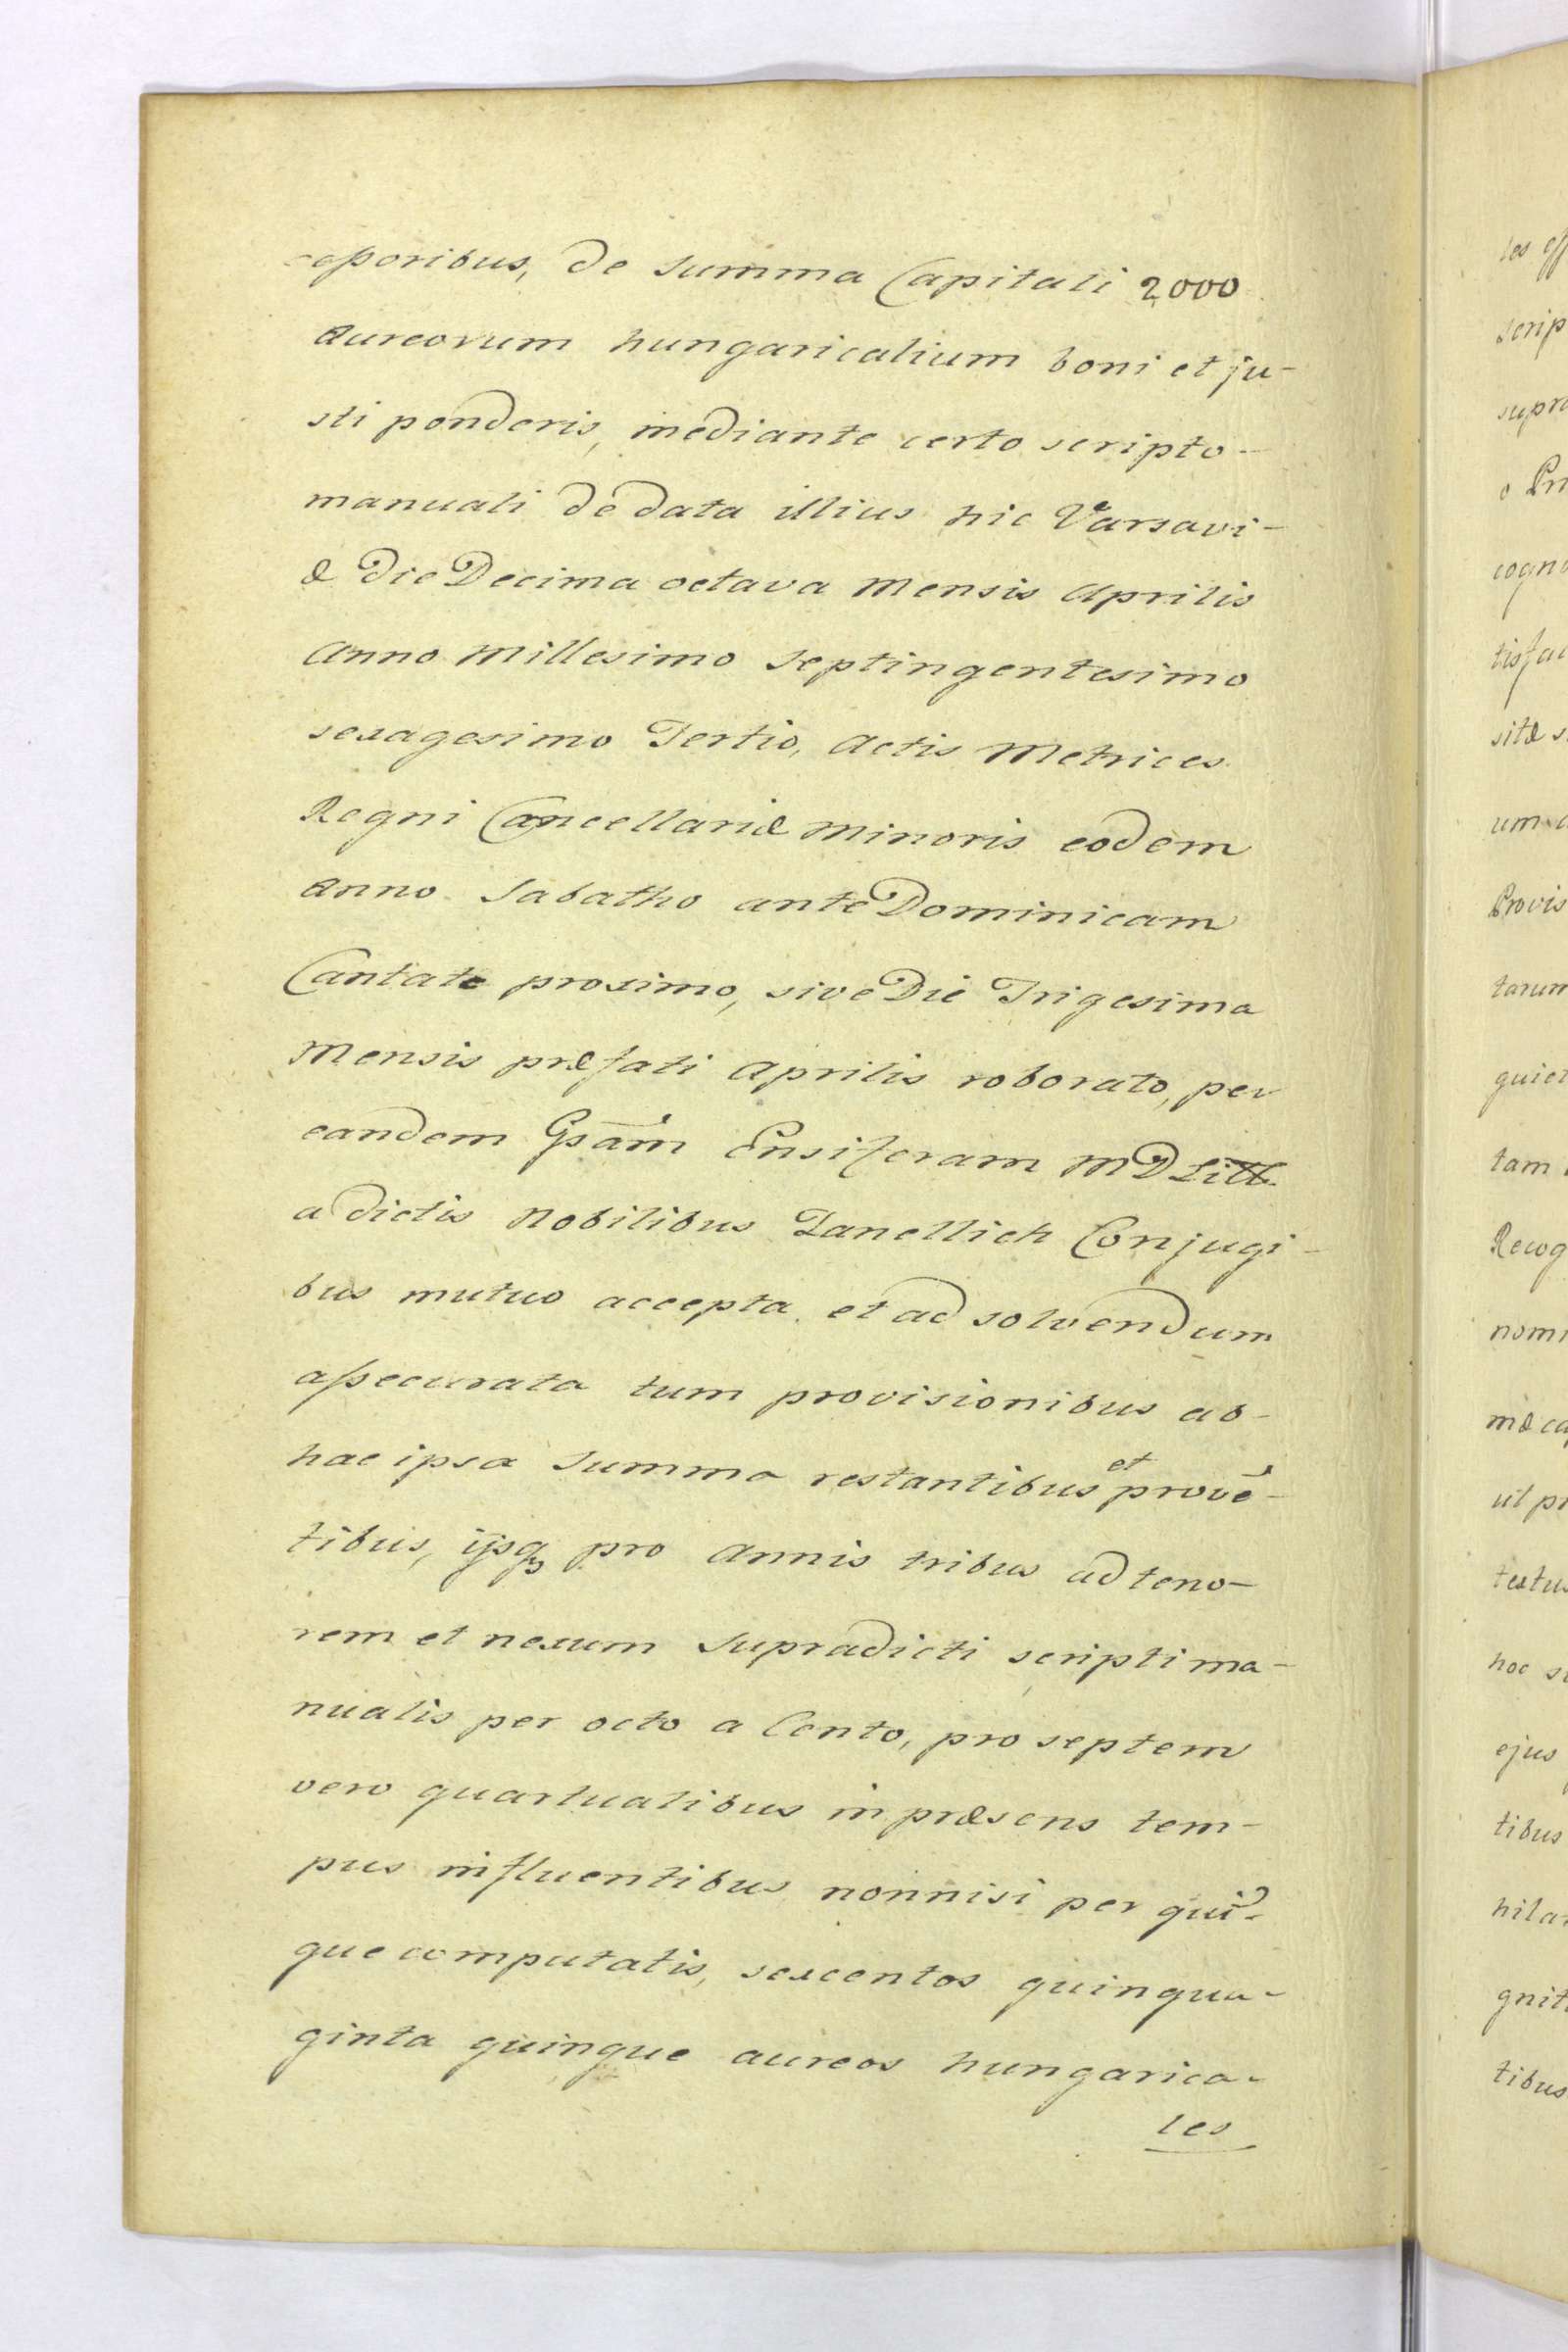 cessoribus, de summa Capitali 2000
Aureorum hungaricalium boni et ju-
sti ponderis, mediante certo scripto-
manuali de data illius hic Varsavi-
æ Die Decima octava Mensis Aprilis
Anno Millesimo Septingentesimo
sexagesimo Tertio, Actis Metrices
Regni Cancellariæ Minoris eodem
Anno Sabatho ante Dominicam
Cantate proximo, sive Die Trigesima
Mensis præfati Aprilis roborato, per
eandem Gsam Ensiferam M D Litt.
a dictis Nobilibus Tanellich Conjugi-
bus mutuo accepta et ad solvendum
assecurata tum provisionibus ab-
hac ipsa Summa restantibus et prove-
tibus, ijsq3 pro Annis tribus ad teno-
rem et nexum Supradicti scripti ma-
nualis per octo a Cento, pro septem
vero quartualibus in præsens tem-
pus influentibus nonnisi per qui-
que computatis, sexcentos quinqua-
ginta quinque aureos hungarica-
les
les
scrip
supra
cogno
sitæ
um
Provis
tarum
quiet
tam
Recog
nomi
mæ ca
uti pr
textus
hoc
ejus
tibus
hila
gnit
tibus